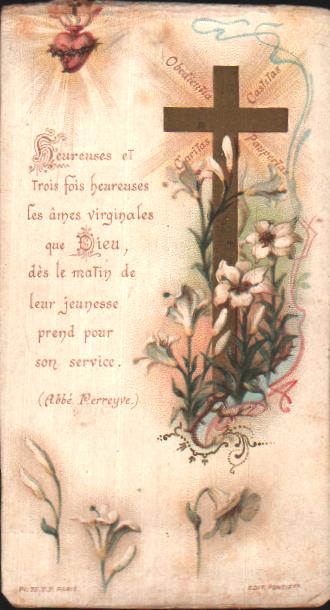 Obedientia
Castitas
Caritas
Paupertas
Heureuses et
trois fois heureuses
les âmes virginales
que Dieu,
dès le matin de
leur jeunesse
prend pour
son service.
(Abbé Perreyve.)
PARIS.